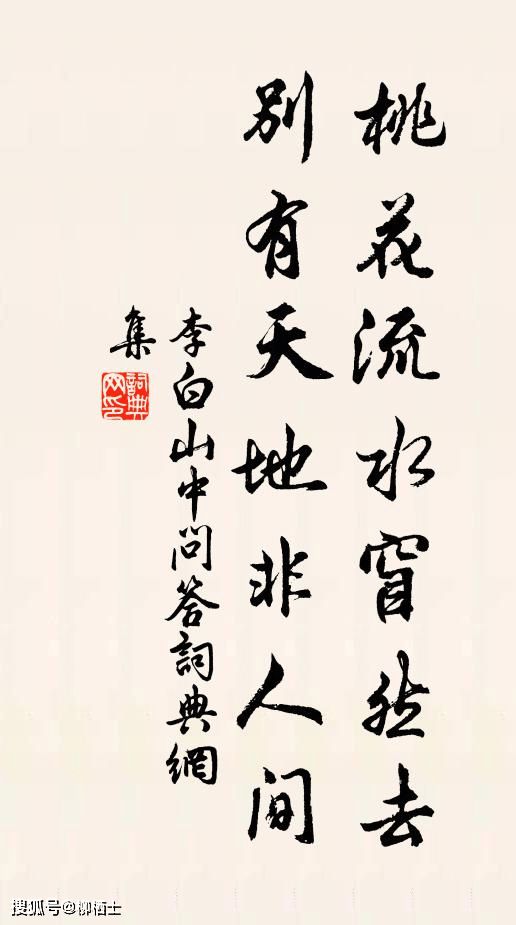 桃花流水窅然去
别有天地非人间
李白山中問答詞典網
集
詞典网印
搜狐号@柳栖士